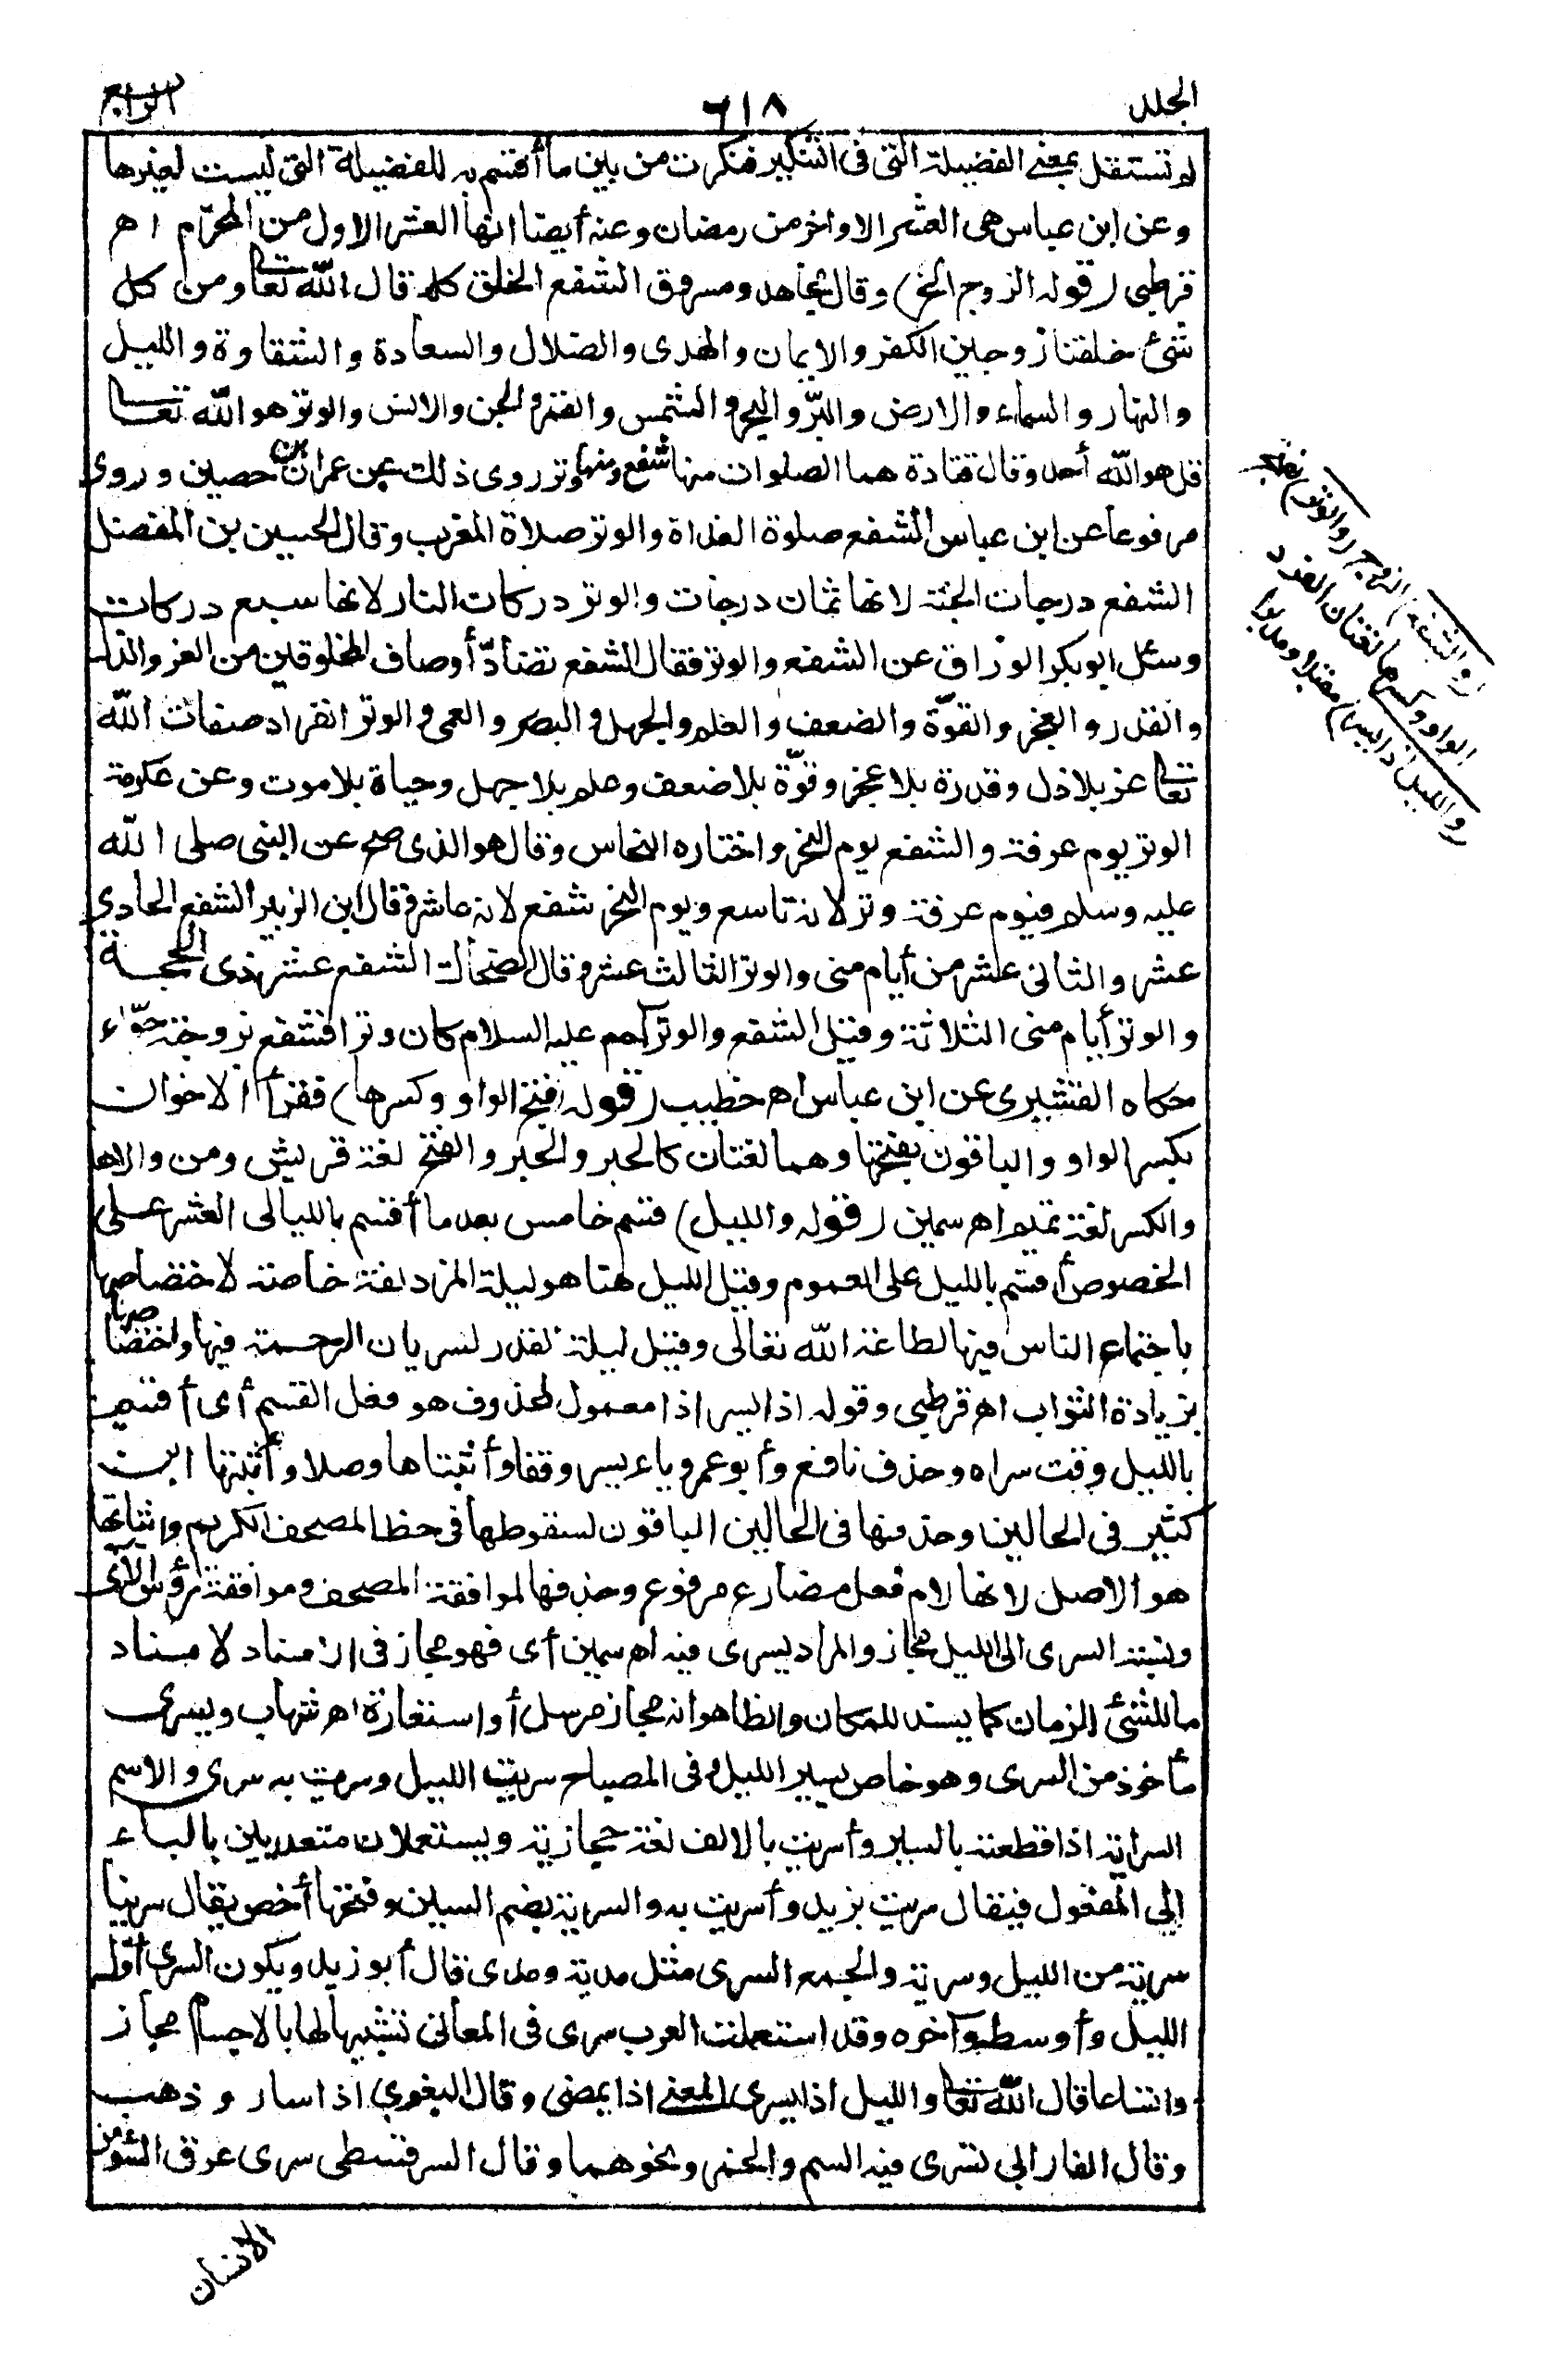 المجلد
٦١٨
الرابع
لم تستقل بمعنى الفضيلة التى فى التنكير فنكرت من بين ما أقسم به للفضيلة التى ليست لغيرها
وعن ابن عباس هى العشر الاواخر من رمضان وعنه أيضا انها العشر الاول من المحرّم اه
قرطبى (قوله الزوج الخ) وقال مجاهد ومسروق الشفع الخلق كله قال الله تعا ومن كل
شئ خلقنا زوجين الكفر والايمان والهدى والضلال والسعادة والشقاوة والليل
والنهار والسماء والارض والبرّ والبحر والشمس والقمر والجن والانس والوتر هو الله تعا
قل هو الله أحد وقال قتادة هما الصلوات منها شفع ومنها وتر روى ذلك عن عمران بن حصين وروى
مرفوعا عن ابن عباس الشفع صلوة الغداة والوتر صلاة المغرب وقال الحسين بن المفضل
الشفع درجات الجنة لانها ثمان درجات والوتر دركات النار لانها سبع دركات
وسئل ابوبكر الوراق عن الشفع والوتر فقال الشفع تضادّ أوصاف المخلوقين من العز والذل
والقدر والعجز والقوّة والضعف والعلم والجهل والبصر والعمى والوتر انفراد صفات الله
تعا عز بلا ذل وقدرة بلا عجز وقوّة بلا ضعف وعلم بلا جهل وحياة بلا موت وعن عكرمة
الوتر يوم عرفة والشفع يوم النحر واختاره النحاس وقال هو الذى صح عن النبى صلى الله
عليه وسلم فيوم عرفة وتر لانه تاسع ويوم النحر شفع لانه عاشر وقال ابن الزبير الشفع الحادى
عشر والثانى عشر من أيام منى والوتر الثالث عشر وقال الضحاك الشفع عشر ذى الحجة
والوتر أيام منى الثلاثة وقيل الشفع والوتر آدم عليه السلام كان وترا فشفع بزوجته حوّاء
حكاه القشيرى عن ابن عباس اه خطيب (قوله بفتح الواو وكسرها) فقرأ الاخوان
بكسر الواو والباقون بفتحها وهما لغتان كالحبر والحبر والفتح لغة قريش ومن والاها
والكسر لغة تميم اه سمين (قوله والليل) قسم خامس بعد ما أقسم بالليالى العشر على
الخصوص أقسم بالليل على العموم وقيل الليل هنا هو ليلة المزدلفة خاصة لاختصاصها
باجتماع الناس فيها لطاعة الله تعالى وقيل ليلة القدر لسريان الرحمة فيها واختصاصها
بزيادة الثواب اه قرطبى وقوله اذا يسر اذا معمول لمحذوف هو فعل القسم أى أقسم
بالليل وقت سراه وحذف نافع وأبو عمرو ياء يسر وقفا وأثبتاها وصلا وأثبتها ابن
كثير فى الحالين وحذفها فى الحالين الباقون لسقوطها فى خط المصحف الكريم واثباتها
هو الاصل لانها لام فعل مضارع مرفوع وحذفها لموافقة المصحف وموافقة رؤس الآى
ونسبة السرى الى الليل مجاز والمراد يسرى فيه اه سمين أى فهو مجاز فى الاسناد لاسناد
ما للشئ للزمان كما يسند للمكان والظاهر انه مجاز مرسل أو استعارة اه شهاب ويسرى
مأخوذ من السرى وهو خاص بسير الليل وفى المصباح سريت الليل وسريت به سرى والاسم
السراية اذا قطعته بالسير وأسريت بالالف لغة حجازية ويستعملان متعديين بالباء
الى المفعول فيقال سريت بزيد وأسريت به والسرية بضم السين وفتحها أخص يقال سرينا
سرية من الليل وسرية والجمع السرى مثل مدية ومدى قال أبو زيد ويكون السرى أول
الليل وأوسطه وآخره وقد استعملت العرب سرى فى المعانى تشبيها لها بالاجسام مجازا
واتساعا قال الله تعا والليل اذا يسرى المعنى اذا يمضى وقال البغوى اذا سار وذهب
وقال الفارابى تسرى فيه السم والخمر ونحوهما وقال السرقسطى سرى عرق السوء من
الانسان
(والشفع) الزوج (والوتر) بفتح
الواو وكسرها لغتان الفرد
(والليل اذا يسر) مقبلا ومدبرا